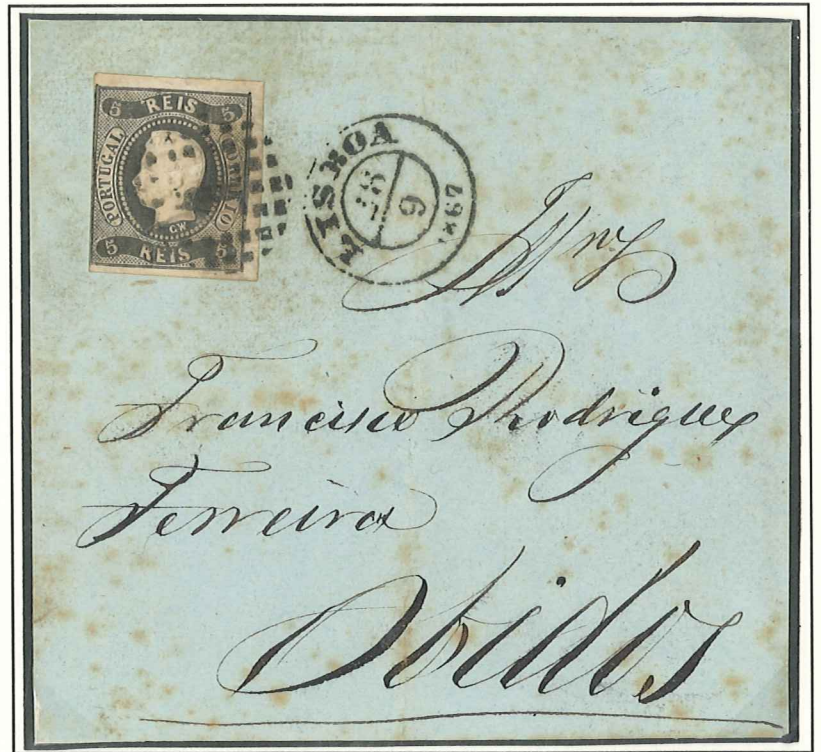 5 REIS 5
PORTUGAL
CORREIO
CW
5 REIS 5
LISBOA
6
1867
Francisco Rodrigues
Ferreira
Obidos